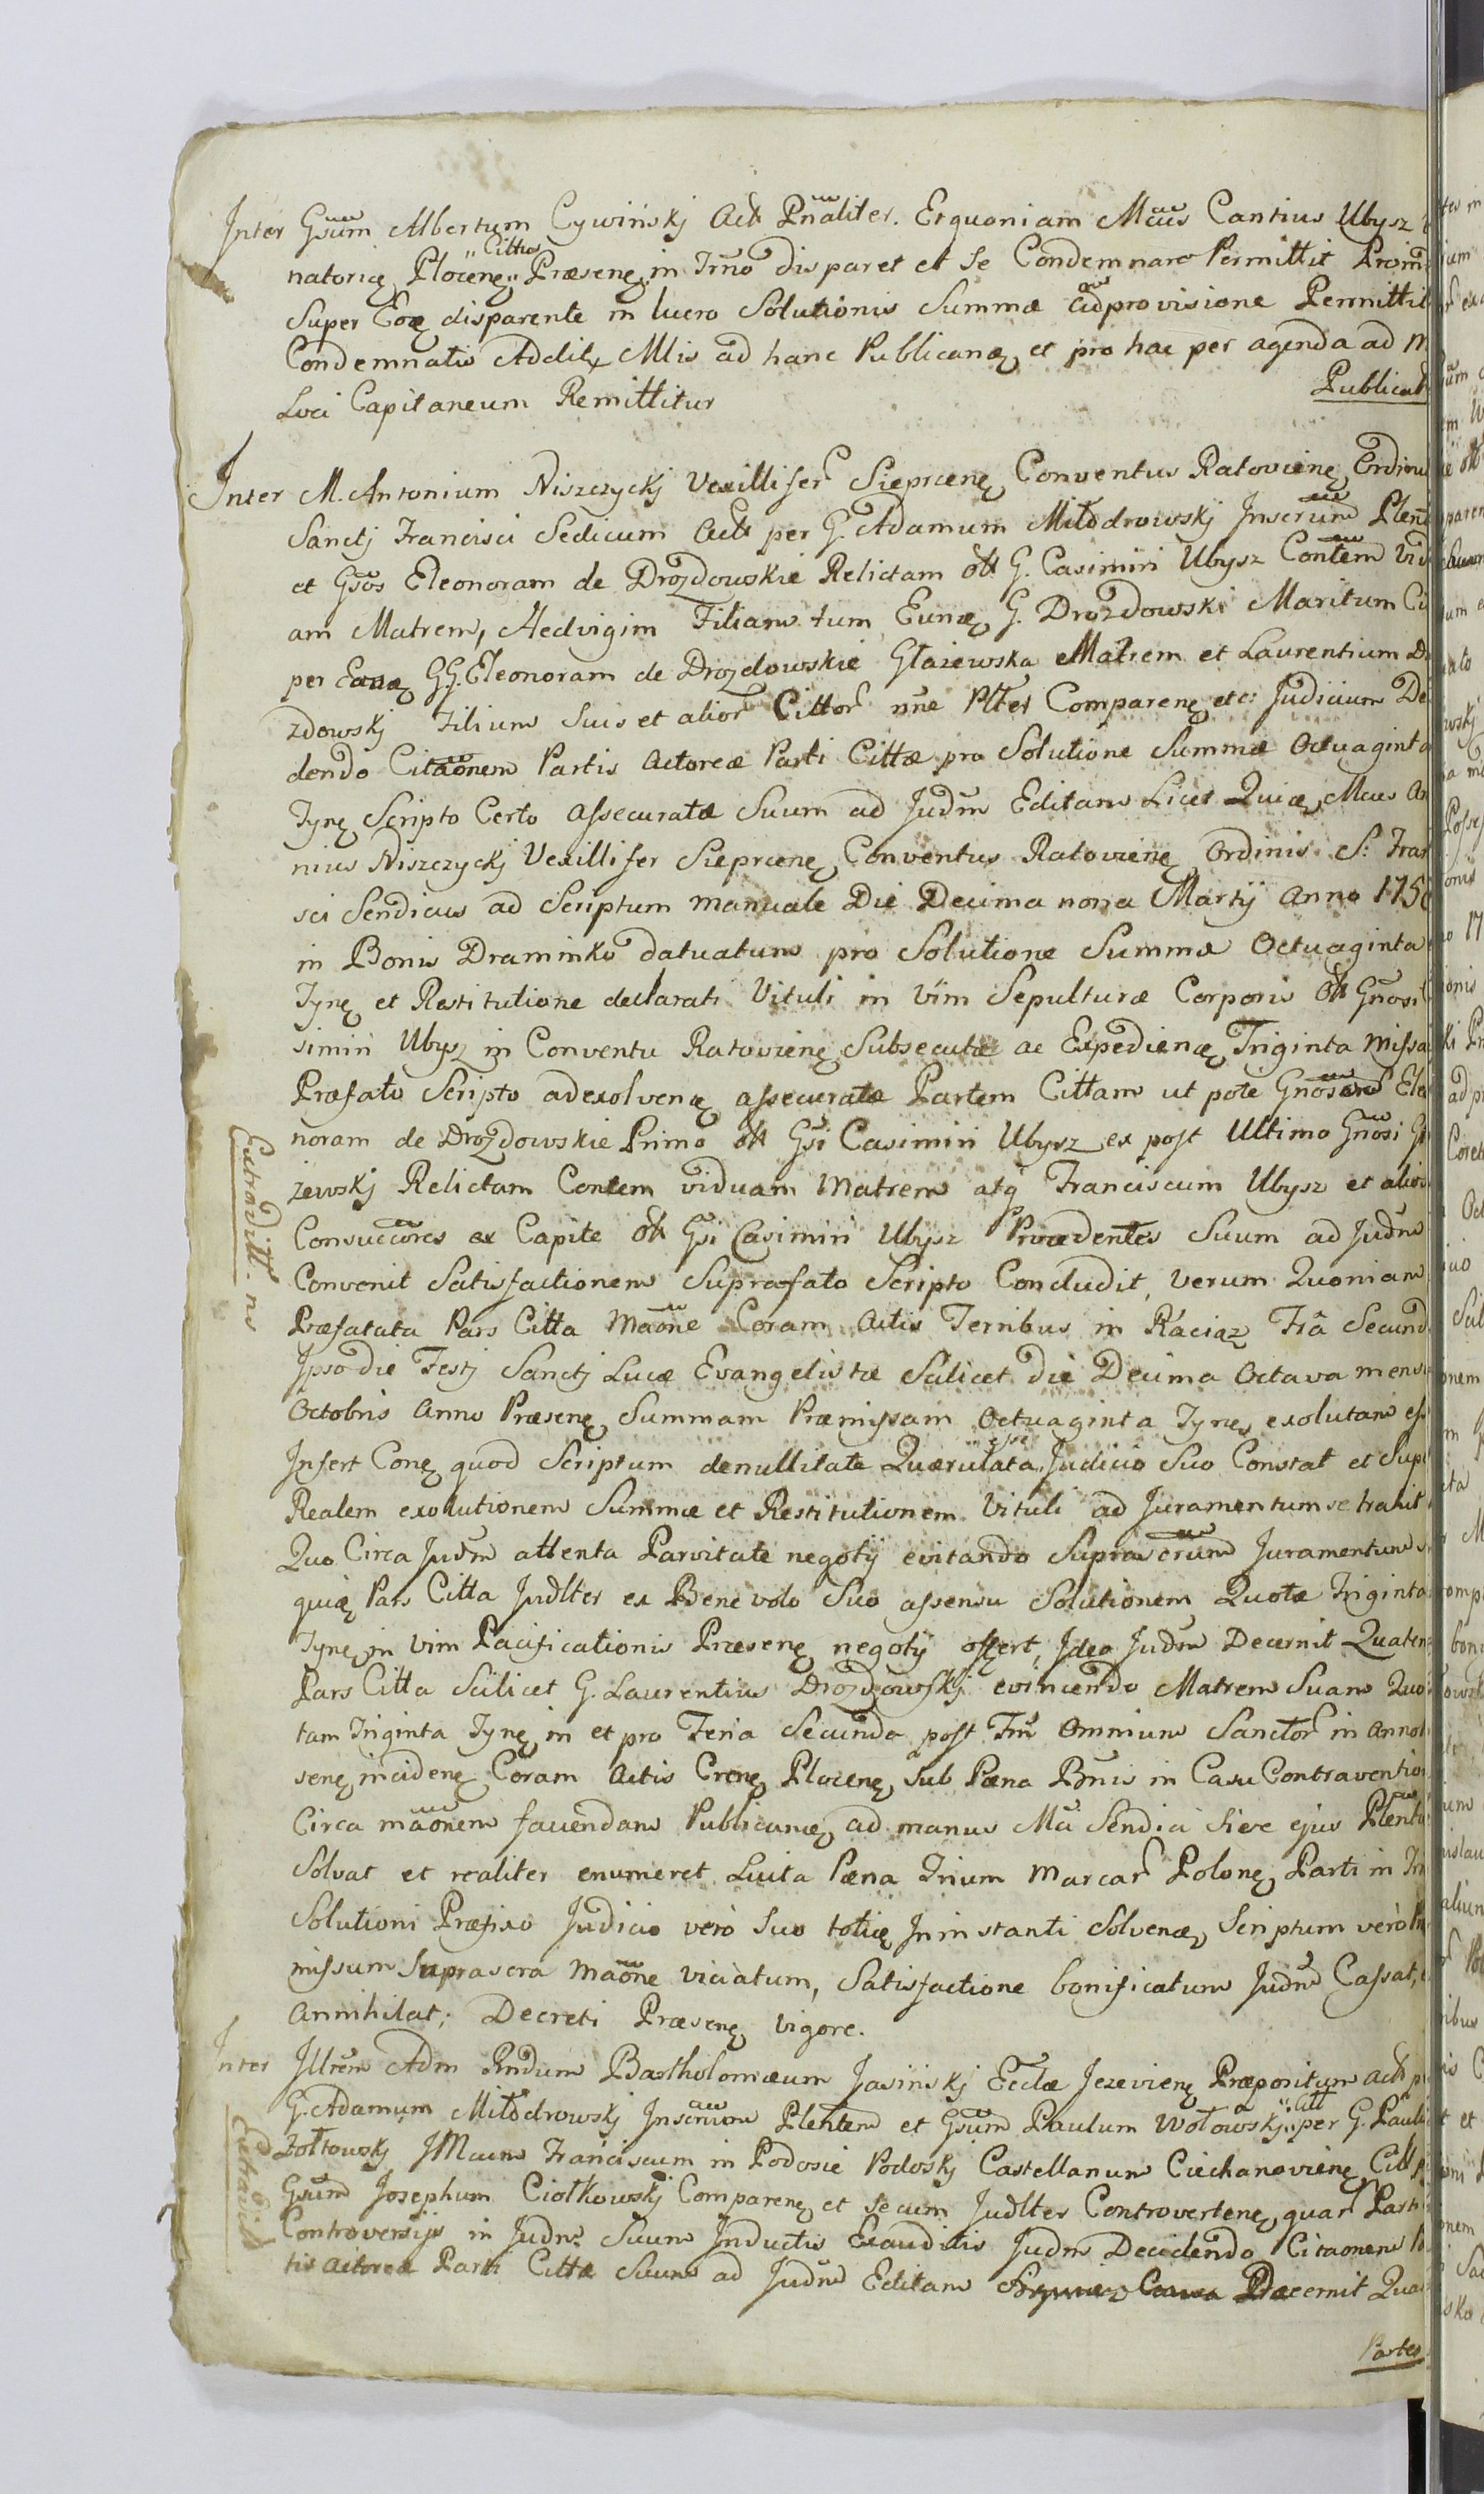 Inter Gsum Albertum Cywinskj Act Pnaliter. Et quoniam Mcus Cantius Ubysz
natorię Plocenę „Cittus„ Præsenę in Trno disparet et se Condemnare Permittit
Super Eoę disparente in lucro Solutionis Summæ ad provisione Permittit
Condemnatis Additę Mlis ad hanc Publicanę et pro hac per agenda ad M
Loci Capitaneum Remittitur
Publicat
Inter M. Antonium Niszczyckj Vexillifer Sieprcenę Conventus Ratovienę Ordinis
Sanctj Francisci Sedicum Act per G. Adamum Miłodrowskj Inscrum Plen
et Gsos Eleonoram de Drozdowskie Relictam olt G. Casimiri Ubysz Contem Vid
am Matrem, Hedvigim Filiam tum Eunę G. Drozdowski Maritum Ci
per Eanę GG. Eleonoram de Drozdowskie Głażewska Matrem et Laurentium Dr
zdowskj Filium Suis et alior Cittor nne Plter Comparenę etc: Judicium De
dendo Citaonem Partis Actoreæ Parti Cittæ pro Solutione Summæ Octuaginta
Tynę Scripto Certo assecuratæ Suum ad Judm Editam Licet Quię Mcus An
nius Niszczyckj Vexillifer Sieprcenę Conventus Ratovienę Ordinis S: Fran
sci Sendicus ad Scriptum manuale Die Decima nona Martij Anno 175
in Bonis Draminko datuatum pro Solutione Summæ Octuaginta
Tynę et Restitutione declarati Vituli in vim Sepulturæ Corporis olt Gnosi
simiri Ubysz in Conventu Ratovienę Subsecutæ ac Expedienę Triginta Missa
Præfato Scripto adexolvenę assecuratæ Partem Cittam ut pote Gnosam Ele
noram de Drozdowskie Primo olt Gsi Casimiri Ubysz ex post Ultimo Gnosi Gł
żewskj Relictam Contem viduam Matrem atq Franciscum Ubysz et alios
Consuccores ex Capite olt Gsi Casimiri Ubysz Provedentes Suum ad Judm
Convenit Satisfactionem Suprafato Scripto Concludit, verum Quoniam
Præfatata Pars Citta Maone Coram Actis Terribus in Raciąz Fra Secund
Ipso die Festj Sanctj Lucæ Evangelistæ Scilicet die Decima Octava mensis
Octobris Anno Præsenę Summam Præmissam Octuaginta Tynę exolutam ess
Infert Conę quod Scriptum denullitate Quærulata „esse„ Judicio Suo Constat et Sup
Realem exolutionem Summæ et Restitutionem Vituli ad Juramentum se trahit
Quo Circa Judm attenta Parvitate negotij evitando Suprascrum Juramentum
quię Pars Citta Judlter ex Benevolo Suo assensu Solutionem Quotæ Triginta
Tynę in vim Pacificationis Præsenę negotij offert, Ideo Judm Decernit Quaten
Pars Citta Scilicet G. Laurentius Drozdowskj evincendo Matrem Suam Quo
tam Triginta Tynę in et pro Feria Secunda post Fm Omnium Sanctor in Anno
senę incidenę Coram Actis Crenę Plocenę sub Pæna Bnis in Casu Contraventio
Circa maonem favendam Publicanę ad manus Mci Sendici Sive ejus Plent
Solvat et realiter enumeret Luita Pæna Trium Marcar Polonę Parti in Tr
Solutioni Præfixo Judicio vero Suo totię Ininstanti Solvenę Scriptum verò
missum Suprascra Maone viciatum, Satisfactione bonificatum Judm Cassat,
Annihilat; Decreti Præsenę vigore.
Extraditt. ns
Inter Illrem Adm Rndum Bartholomæum Jasinskj Ecclæ Jezevienę Præpositum act p
G. Adamum Miłodrowskj Inscrium Plentem et Gsum Paulum Wołowskj „Citt„ per G. Pauli
Zołtowskj IMcum Franciscum in Podosie Podoskj Castellanum Ciechanovienę Citt p
Gsum Josephum Ciołkowskj Comparenę et Secum Judlter Controvertenę quar Parti
Controversijs in Judm Suum Inductis Exauditis Judm Decidendo Citaonem
tis Actoreæ Parti Cittæ Suum ad Judm Editam Decernit Qua
Extradit
Partes